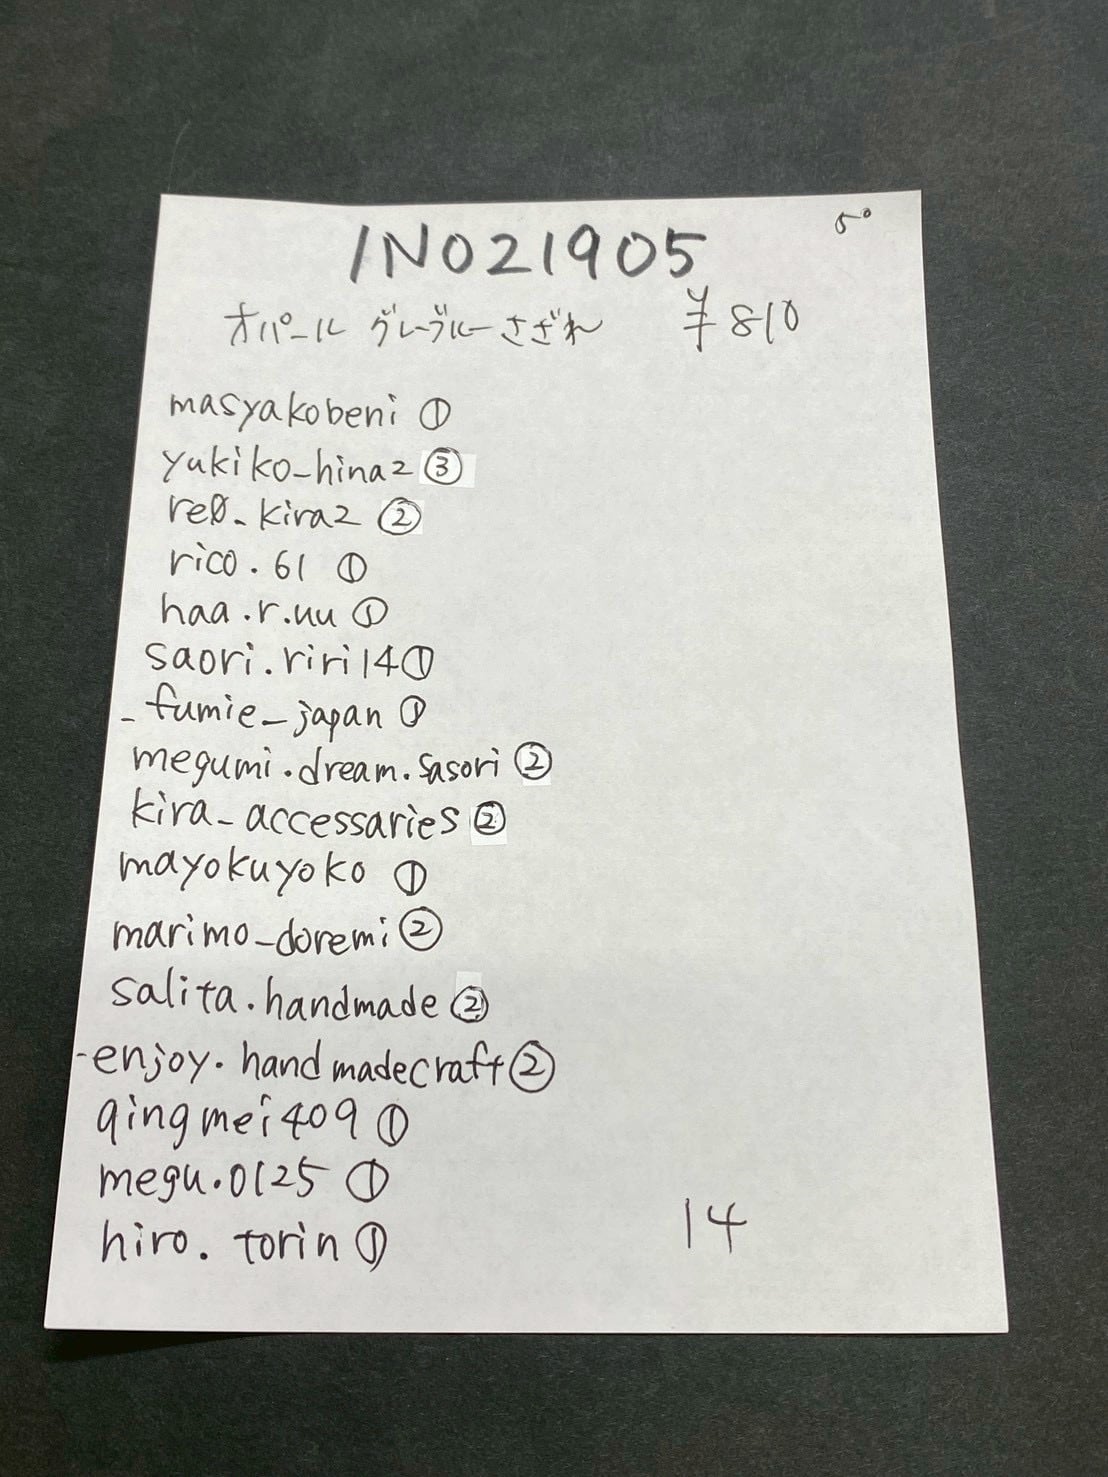 IN021905
オパール グレーブルーさざれ ¥810
masyakobeni ①
yukiko_hina2 ③
re0_kira2 ②
rico.61 ①
haa.r.uu ①
saori.riri14 ①
_fumie_japan ①
megumi.dream.sasori ②
kira_accessaries ②
mayokuyoko ①
marimo_doremi ②
salita.handmade ②
-enjoy.handmadecraft ②
qingmei409 ①
megu.0125 ①
hiro.torin ①
14